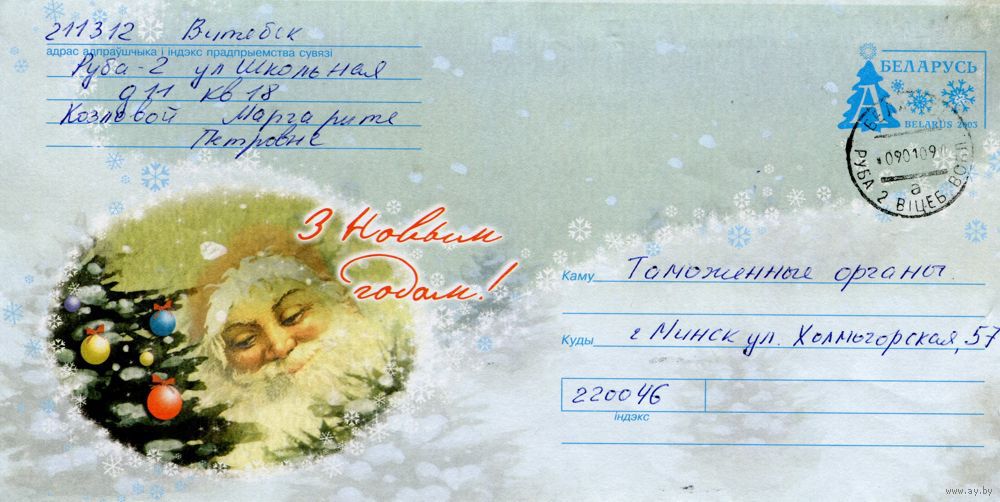 211312 Витебск
адрас адпраўшчыка і індэкс прадпрыемства сувязі
Руба-2 ул Школьная
д 11 кв 18
Козловой Маргарите
Петровне
БЕЛАРУСЬ
A
BELARUS 2003
090109
а
РУБА 2 ВІЦЕБ ВОБЛ
З Новым
годам!
Каму Таможенные органы.
Куды г Минск ул. Холмогорская, 57
220046
індэкс
www.ay.by